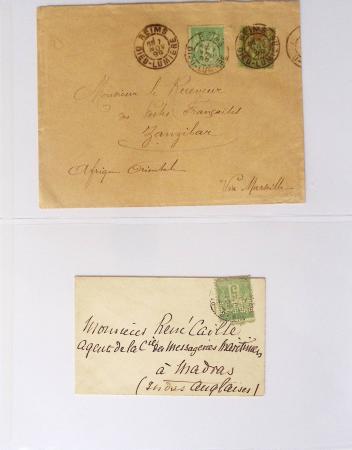 REIMS
1
NOV
99
DIEU-LUMIERE
Monsieur le Receveur
des Postes Françaises
Zanzibar
Afrique Orientale
Via Marseille
Monsieur René Caille
Agent de la Cie des Messageries Maritimes
à Madras
(Indes Anglaises)